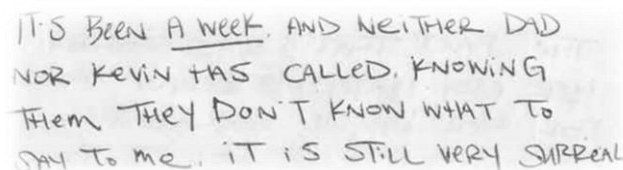 IT'S BEEN A WEEK. AND NEITHER DAD
NOR KEVIN HAS CALLED. KNOWING
THEM THEY DON'T KNOW WHAT TO
SAY TO ME. IT IS STILL VERY SURREAL